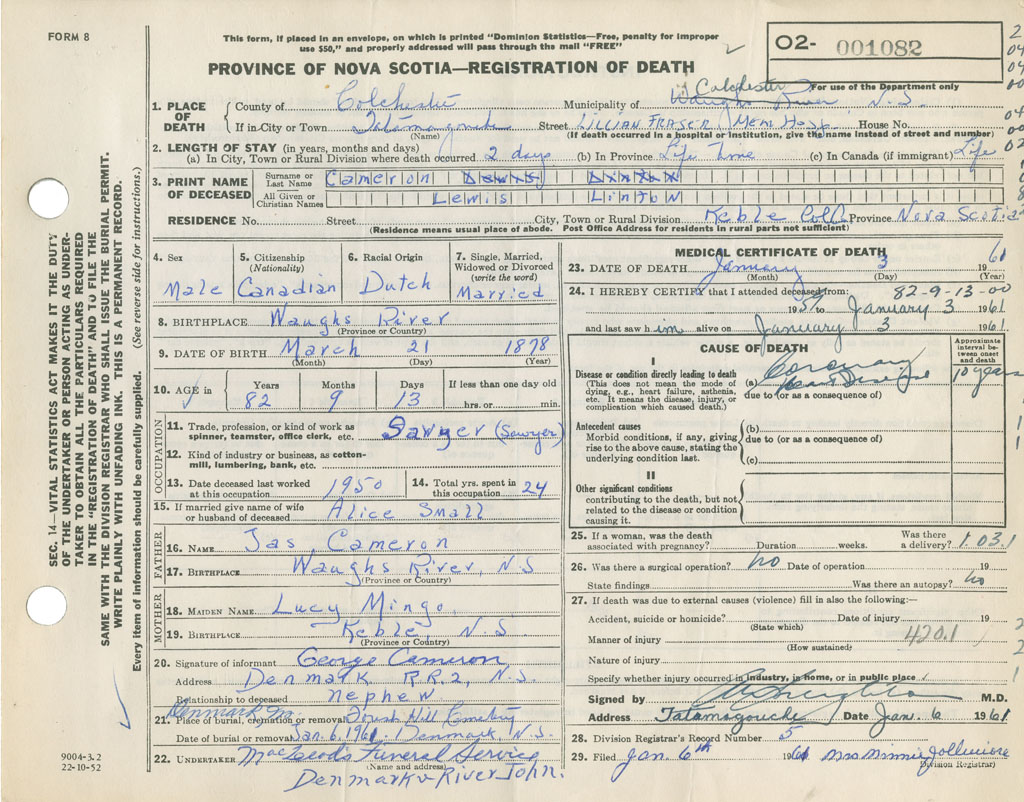 FORM 8
This form, if placed in an envelope, on which is printed "Dominion Statistics—Free, penalty for improper
use $50," and properly addressed will pass through the mail "FREE"
O2- 001082
For use of the Department only
PROVINCE OF NOVA SCOTIA—REGISTRATION OF DEATH
Colchester
1. PLACE OF DEATH County of Colchester Municipality of Waughs River N.S.
If in City or Town Tatamagouche Street LILLIAN FRASER Mem Hosp. House No.
(Name) (If death occurred in a hospital or institution, give the name instead of street and number)
2. LENGTH OF STAY (in years, months and days)
(a) In City, Town or Rural Division where death occurred 2 days (b) In Province Life Time (c) In Canada (if immigrant) Life
3. PRINT NAME OF DECEASED Surname or Last Name Cameron
All Given or Christian Names Lewis Linton
RESIDENCE No. Street City, Town or Rural Division Keble Colch Province Nova Scotia
(Residence means usual place of abode. Post Office Address for residents in rural parts not sufficient)
SEC. 14—VITAL STATISTICS ACT MAKES IT THE DUTY
OF THE UNDERTAKER OR PERSON ACTING AS UNDER-
TAKER TO OBTAIN ALL THE PARTICULARS REQUIRED
IN THE "REGISTRATION OF DEATH" AND TO FILE THE
SAME WITH THE DIVISION REGISTRAR WHO SHALL ISSUE THE BURIAL PERMIT.
WRITE PLAINLY WITH UNFADING INK. THIS IS A PERMANENT RECORD.
Every item of information should be carefully supplied. (See reverse side for instructions.)
4. Sex 5. Citizenship (Nationality) 6. Racial Origin 7. Single, Married, Widowed or Divorced (write the word)
Male Canadian Dutch Married
8. BIRTHPLACE Waughs River
(Province or Country)
9. DATE OF BIRTH March 21 1878
(Month) (Day) (Year)
10. AGE in Years Months Days If less than one day old
82 9 13 hrs. or min.
OCCUPATION
11. Trade, profession or kind of work as spinner, teamster, office clerk, etc. Sawyer (Sawyer)
12. Kind of industry or business, as cotton-mill, lumbering, bank, etc.
13. Date deceased last worked at this occupation 1950 14. Total yrs. spent in this occupation 24
15. If married give name of wife or husband of deceased Alice Small
FATHER
16. NAME Jas, Cameron
17. BIRTHPLACE Waughs River, N.S
(Province or Country)
MOTHER
18. MAIDEN NAME Lucy Mingo
19. BIRTHPLACE Keble, N.S
(Province or Country)
20. Signature of informant George Cameron
Address Denmark R.R.2, N.S.
Relationship to deceased nephew
Denmark
21. Place of burial, cremation or removal Hill Cemetery
Date of burial or removal Jan. 6, 1961. Denmark, N.S.
22. UNDERTAKER MacLeod's Funeral Service
(Name and address)
Denmark & River John.
9004-3.2
22-10-52
MEDICAL CERTIFICATE OF DEATH
23. DATE OF DEATH January 3 1961
(Month) (Day) (Year)
24. I HEREBY CERTIFY that I attended deceased from: 82-9-13-00
1959 to January 3 1961
and last saw him alive on January 3 1961
CAUSE OF DEATH
Approximate interval between onset and death
I
Disease or condition directly leading to death
(This does not mean the mode of dying, e.g., heart failure, asthenia, etc. It means the disease, injury, or complication which caused death.)
(a) Coronary Heart Disease 10 years
due to (or as a consequence of)
Antecedent causes
Morbid conditions, if any, giving rise to the above cause, stating the underlying condition last.
(b)
due to (or as a consequence of)
(c)
II
Other significant conditions
contributing to the death, but not related to the disease or condition causing it.
25. If a woman, was the death associated with pregnancy? Duration weeks. Was there a delivery? 1.03.1
26. Was there a surgical operation? No Date of operation 19
State findings Was there an autopsy? No
27. If death was due to external causes (violence) fill in also the following:—
Accident, suicide or homicide? Date of injury 19
(State which)
Manner of injury 420.1
(How sustained)
Nature of injury
Specify whether injury occurred in industry, in home, or in public place
Signed by M.D.
Address Tatamagouche Date Jan. 6 1961
28. Division Registrar's Record Number 5
29. Filed Jan. 6th 1961 Mrs Minnie
(Division Registrar)